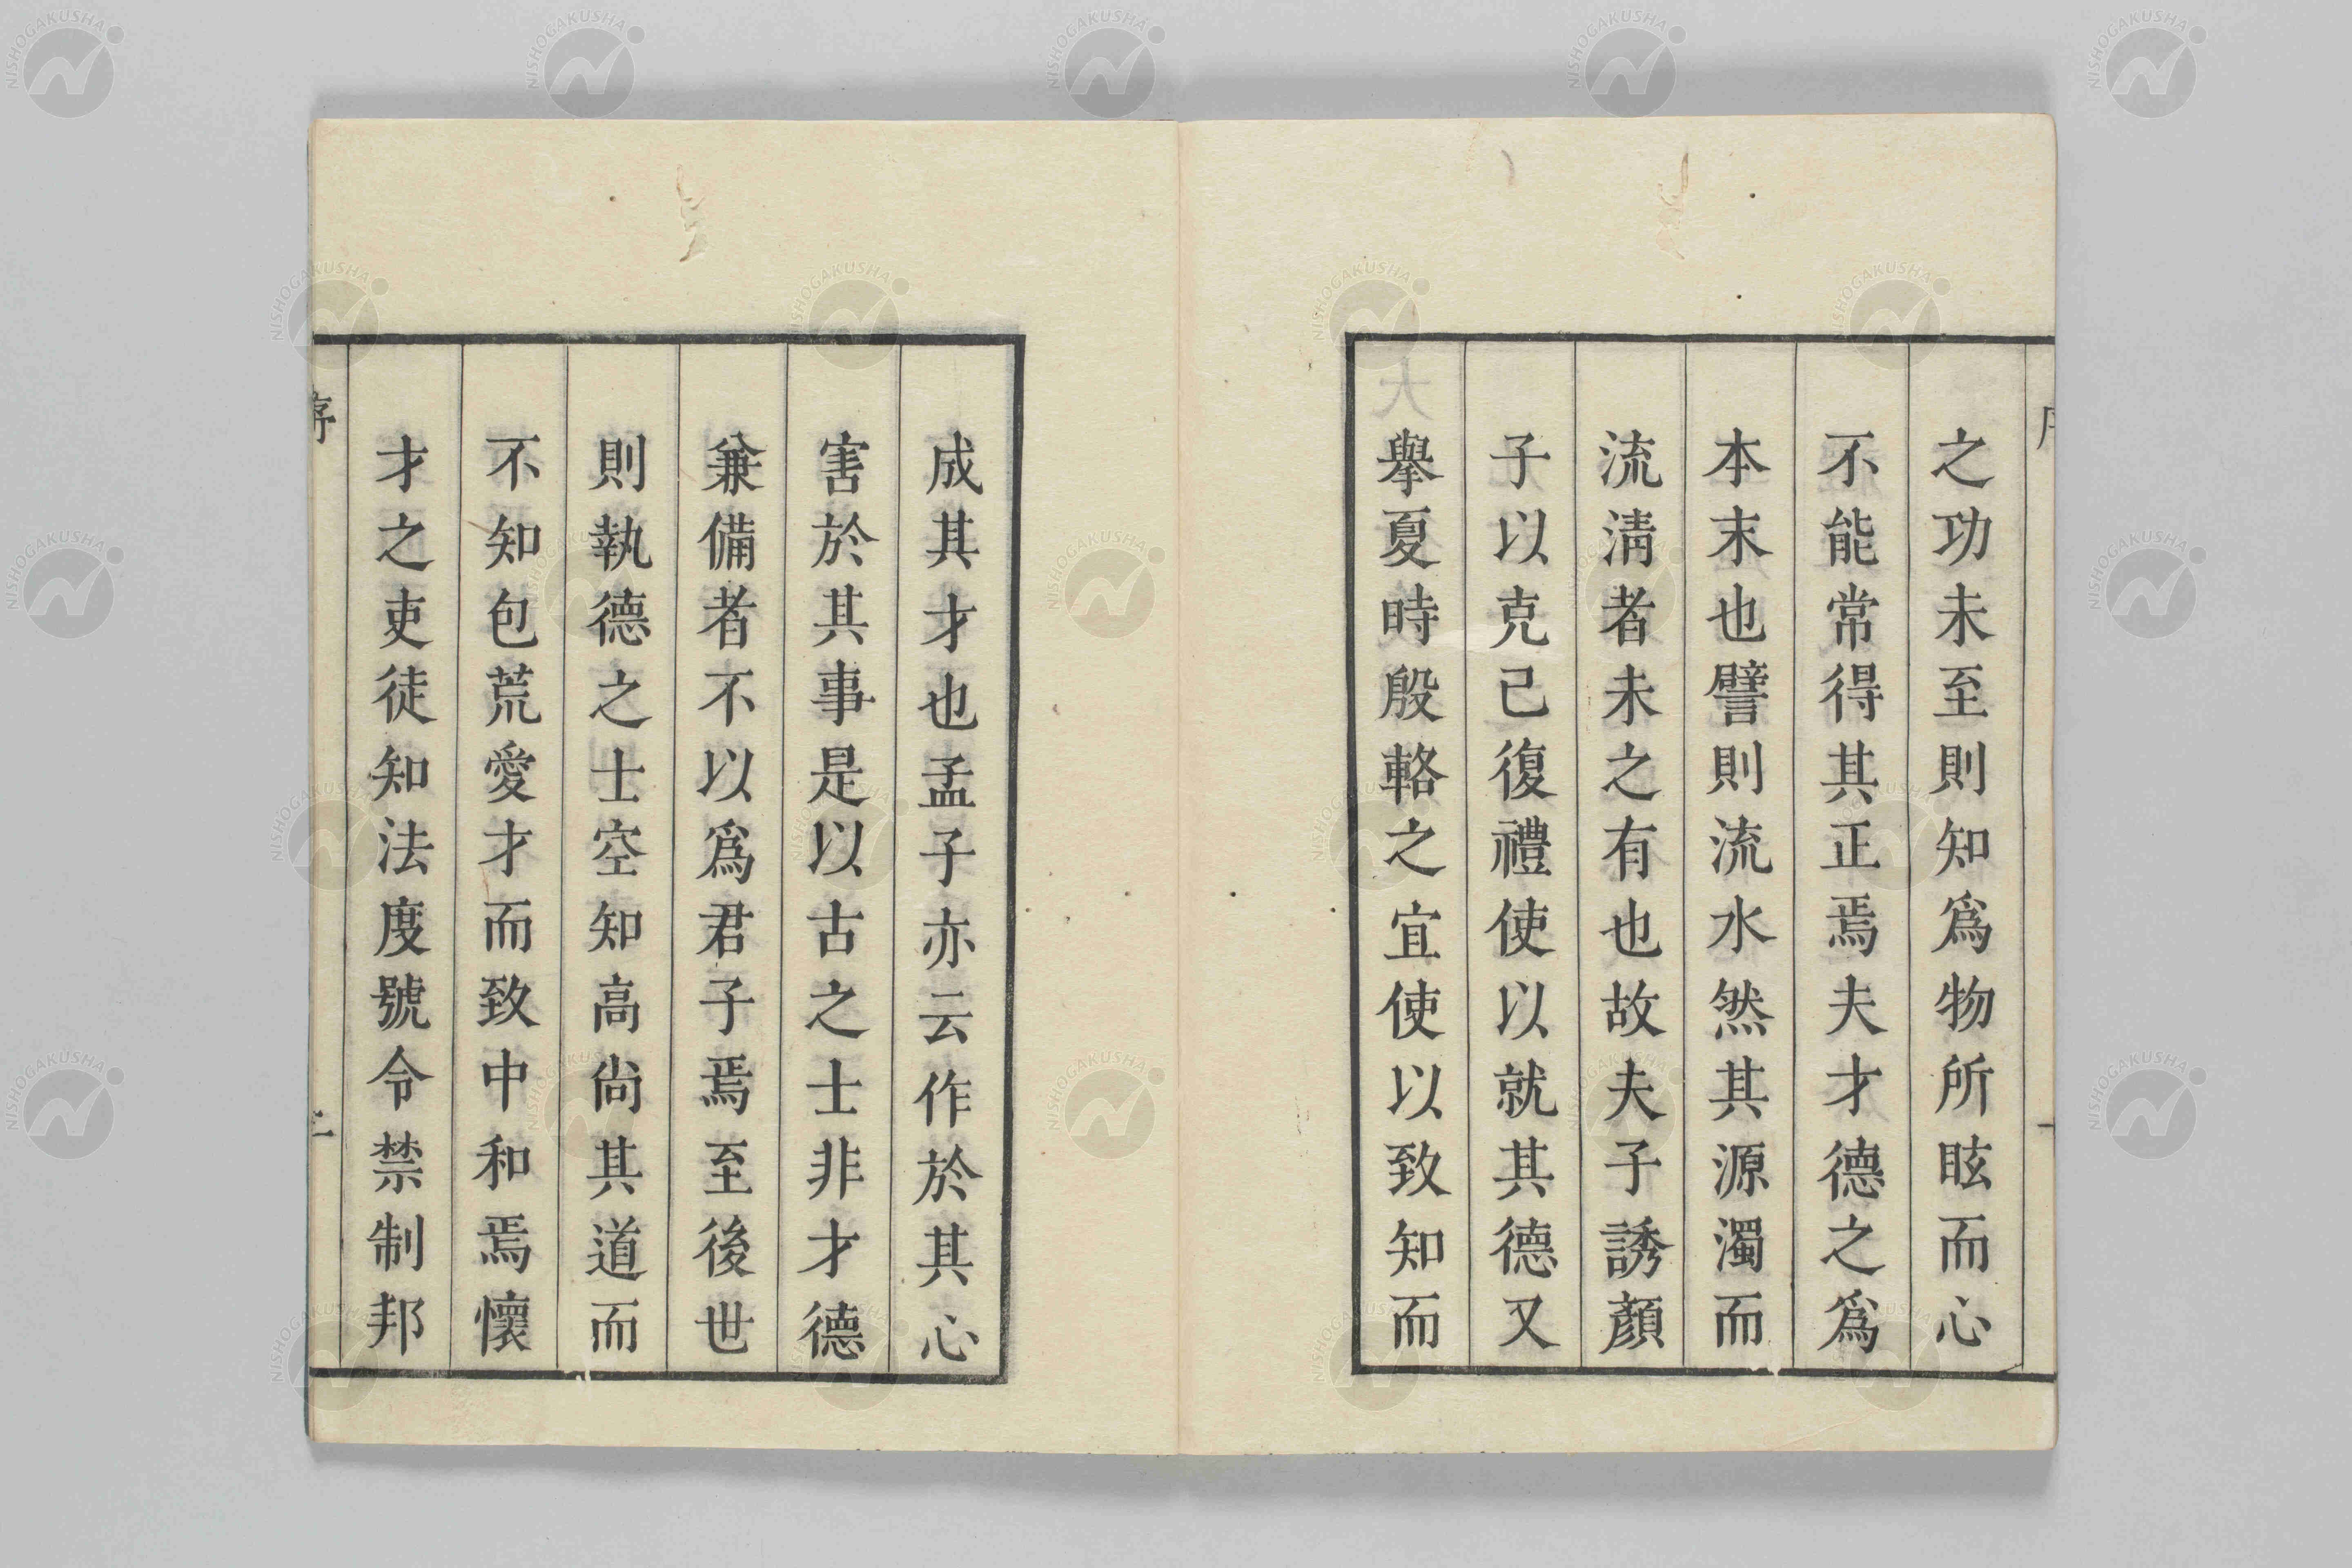 之功未至則知爲物所眩而心
不能常得其正焉夫才德之爲
本末也譬則流水然其源濁而
流淸者未之有也故夫子誘顏
子以克己復禮使以就其德又
擧夏時殷輅之宜使以致知而
成其才也孟子亦云作於其心
害於其事是以古之士非才德
兼備者不以爲君子焉至後世
則執德之士空知高尙其道而
不知包荒愛才而致中和焉懷
才之吏徒知法度號令禁制邦
序
NISHOGAKUSHA